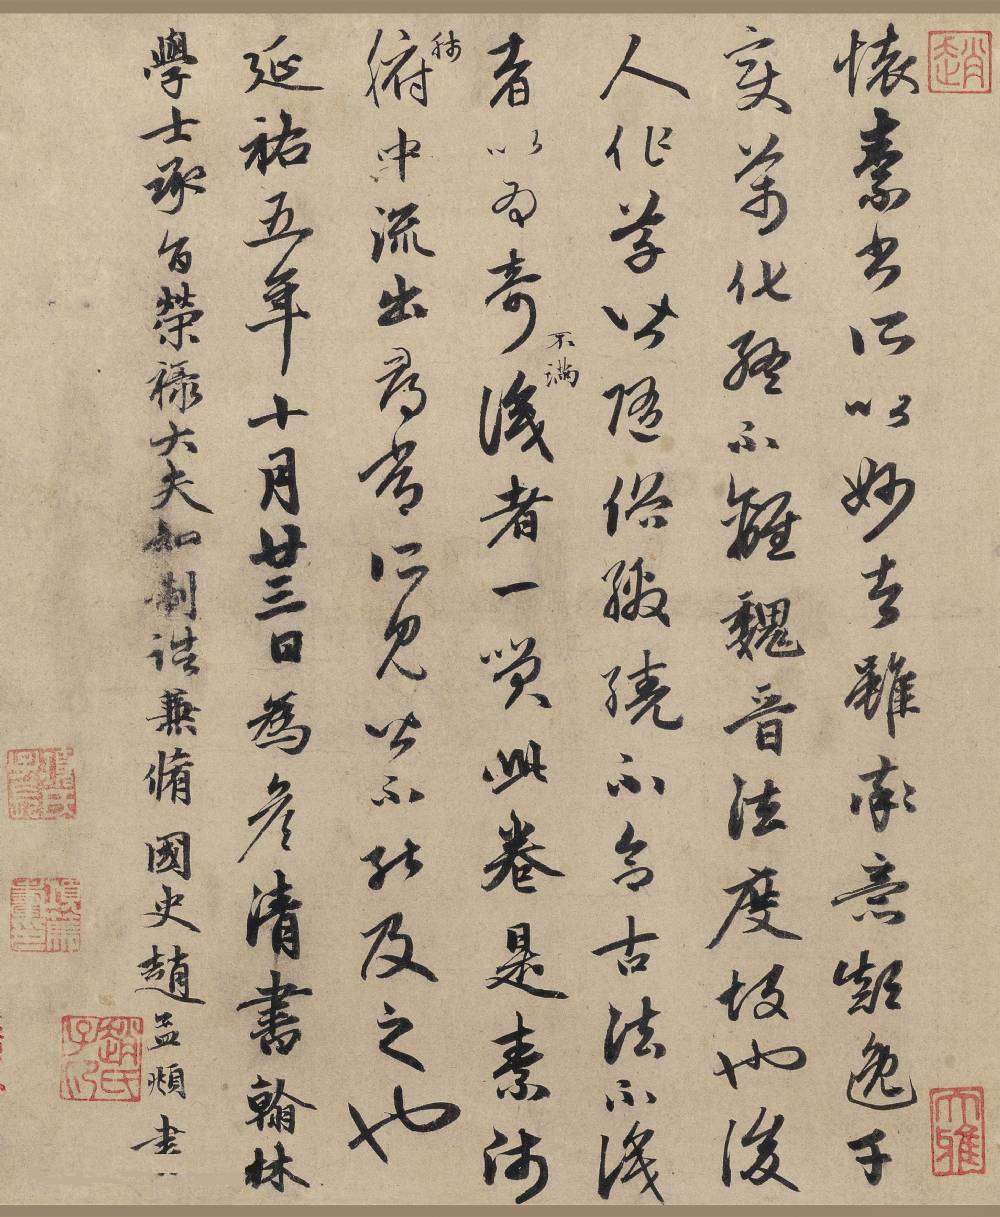 趙
懷素書所以妙者雖率意顛逸千
大雅
變萬化終不離魏晉法度故也後
人作草皆隨俗繳繞不合古法不識
者以為奇不滿識者一笑此卷是素師
肺腑中流出尋常所見皆不能及之也
延祐五年十月廿三日為彥清書翰林
學士承旨榮祿大夫知制誥兼脩國史趙孟頫書
趙氏子昂